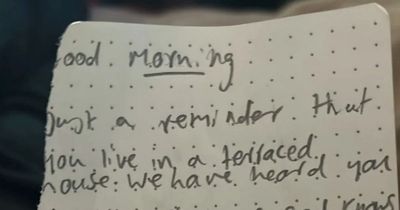 Good Morning
Just a reminder that
you live in a terraced
house. We have heard you
knows